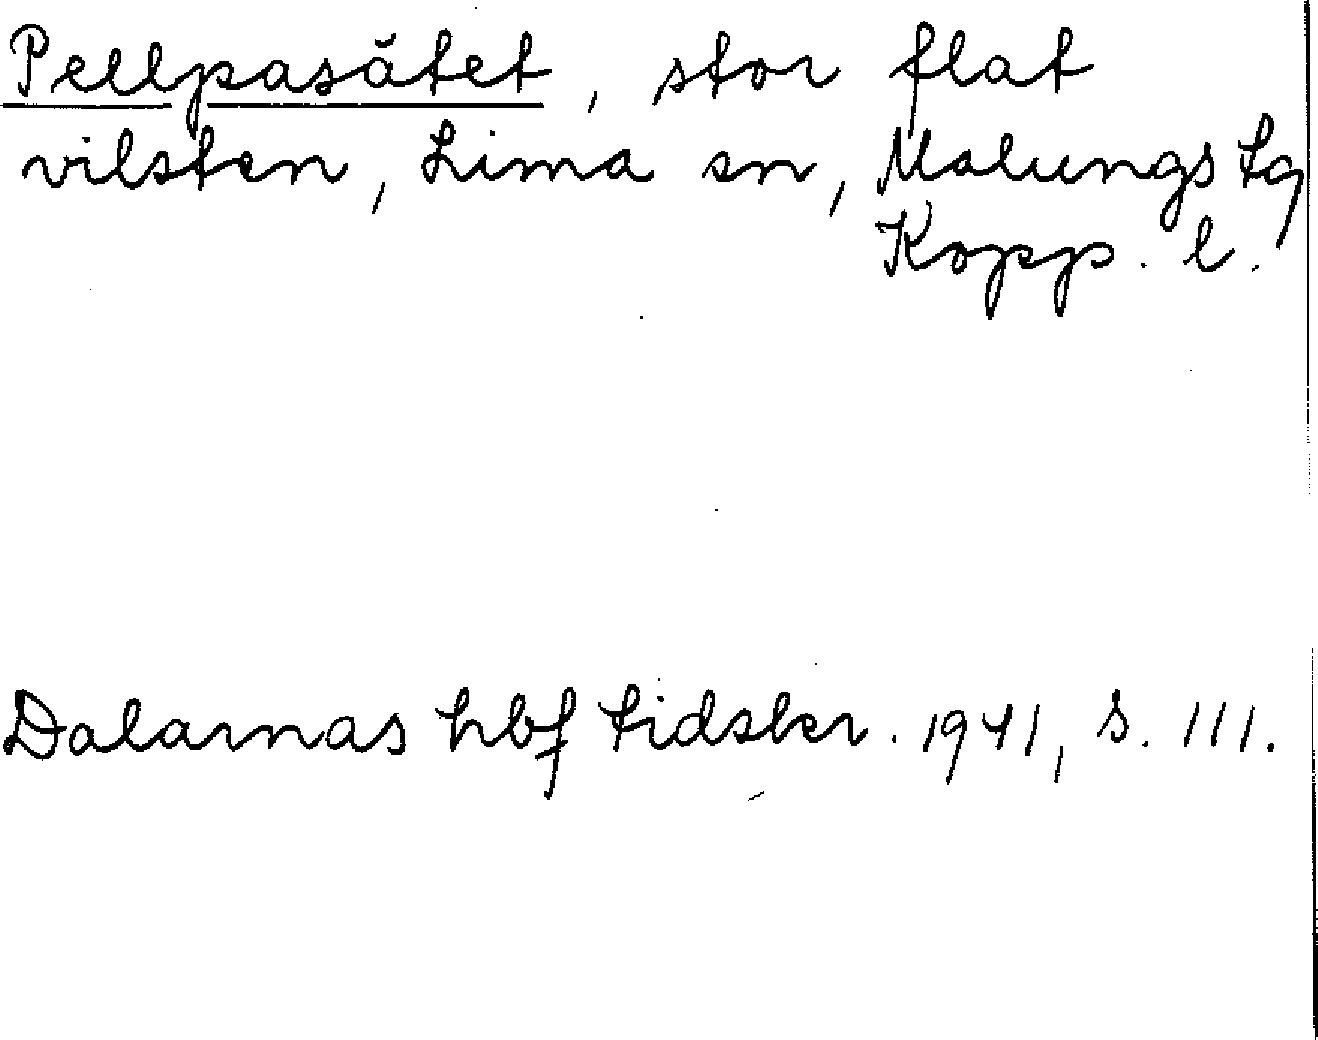 Pellpasätet, stor flat
vilsten, Lima sn, Malungs tg
Kopp. l.
Dalarnas hbf tidskr. 1941, s. 111.